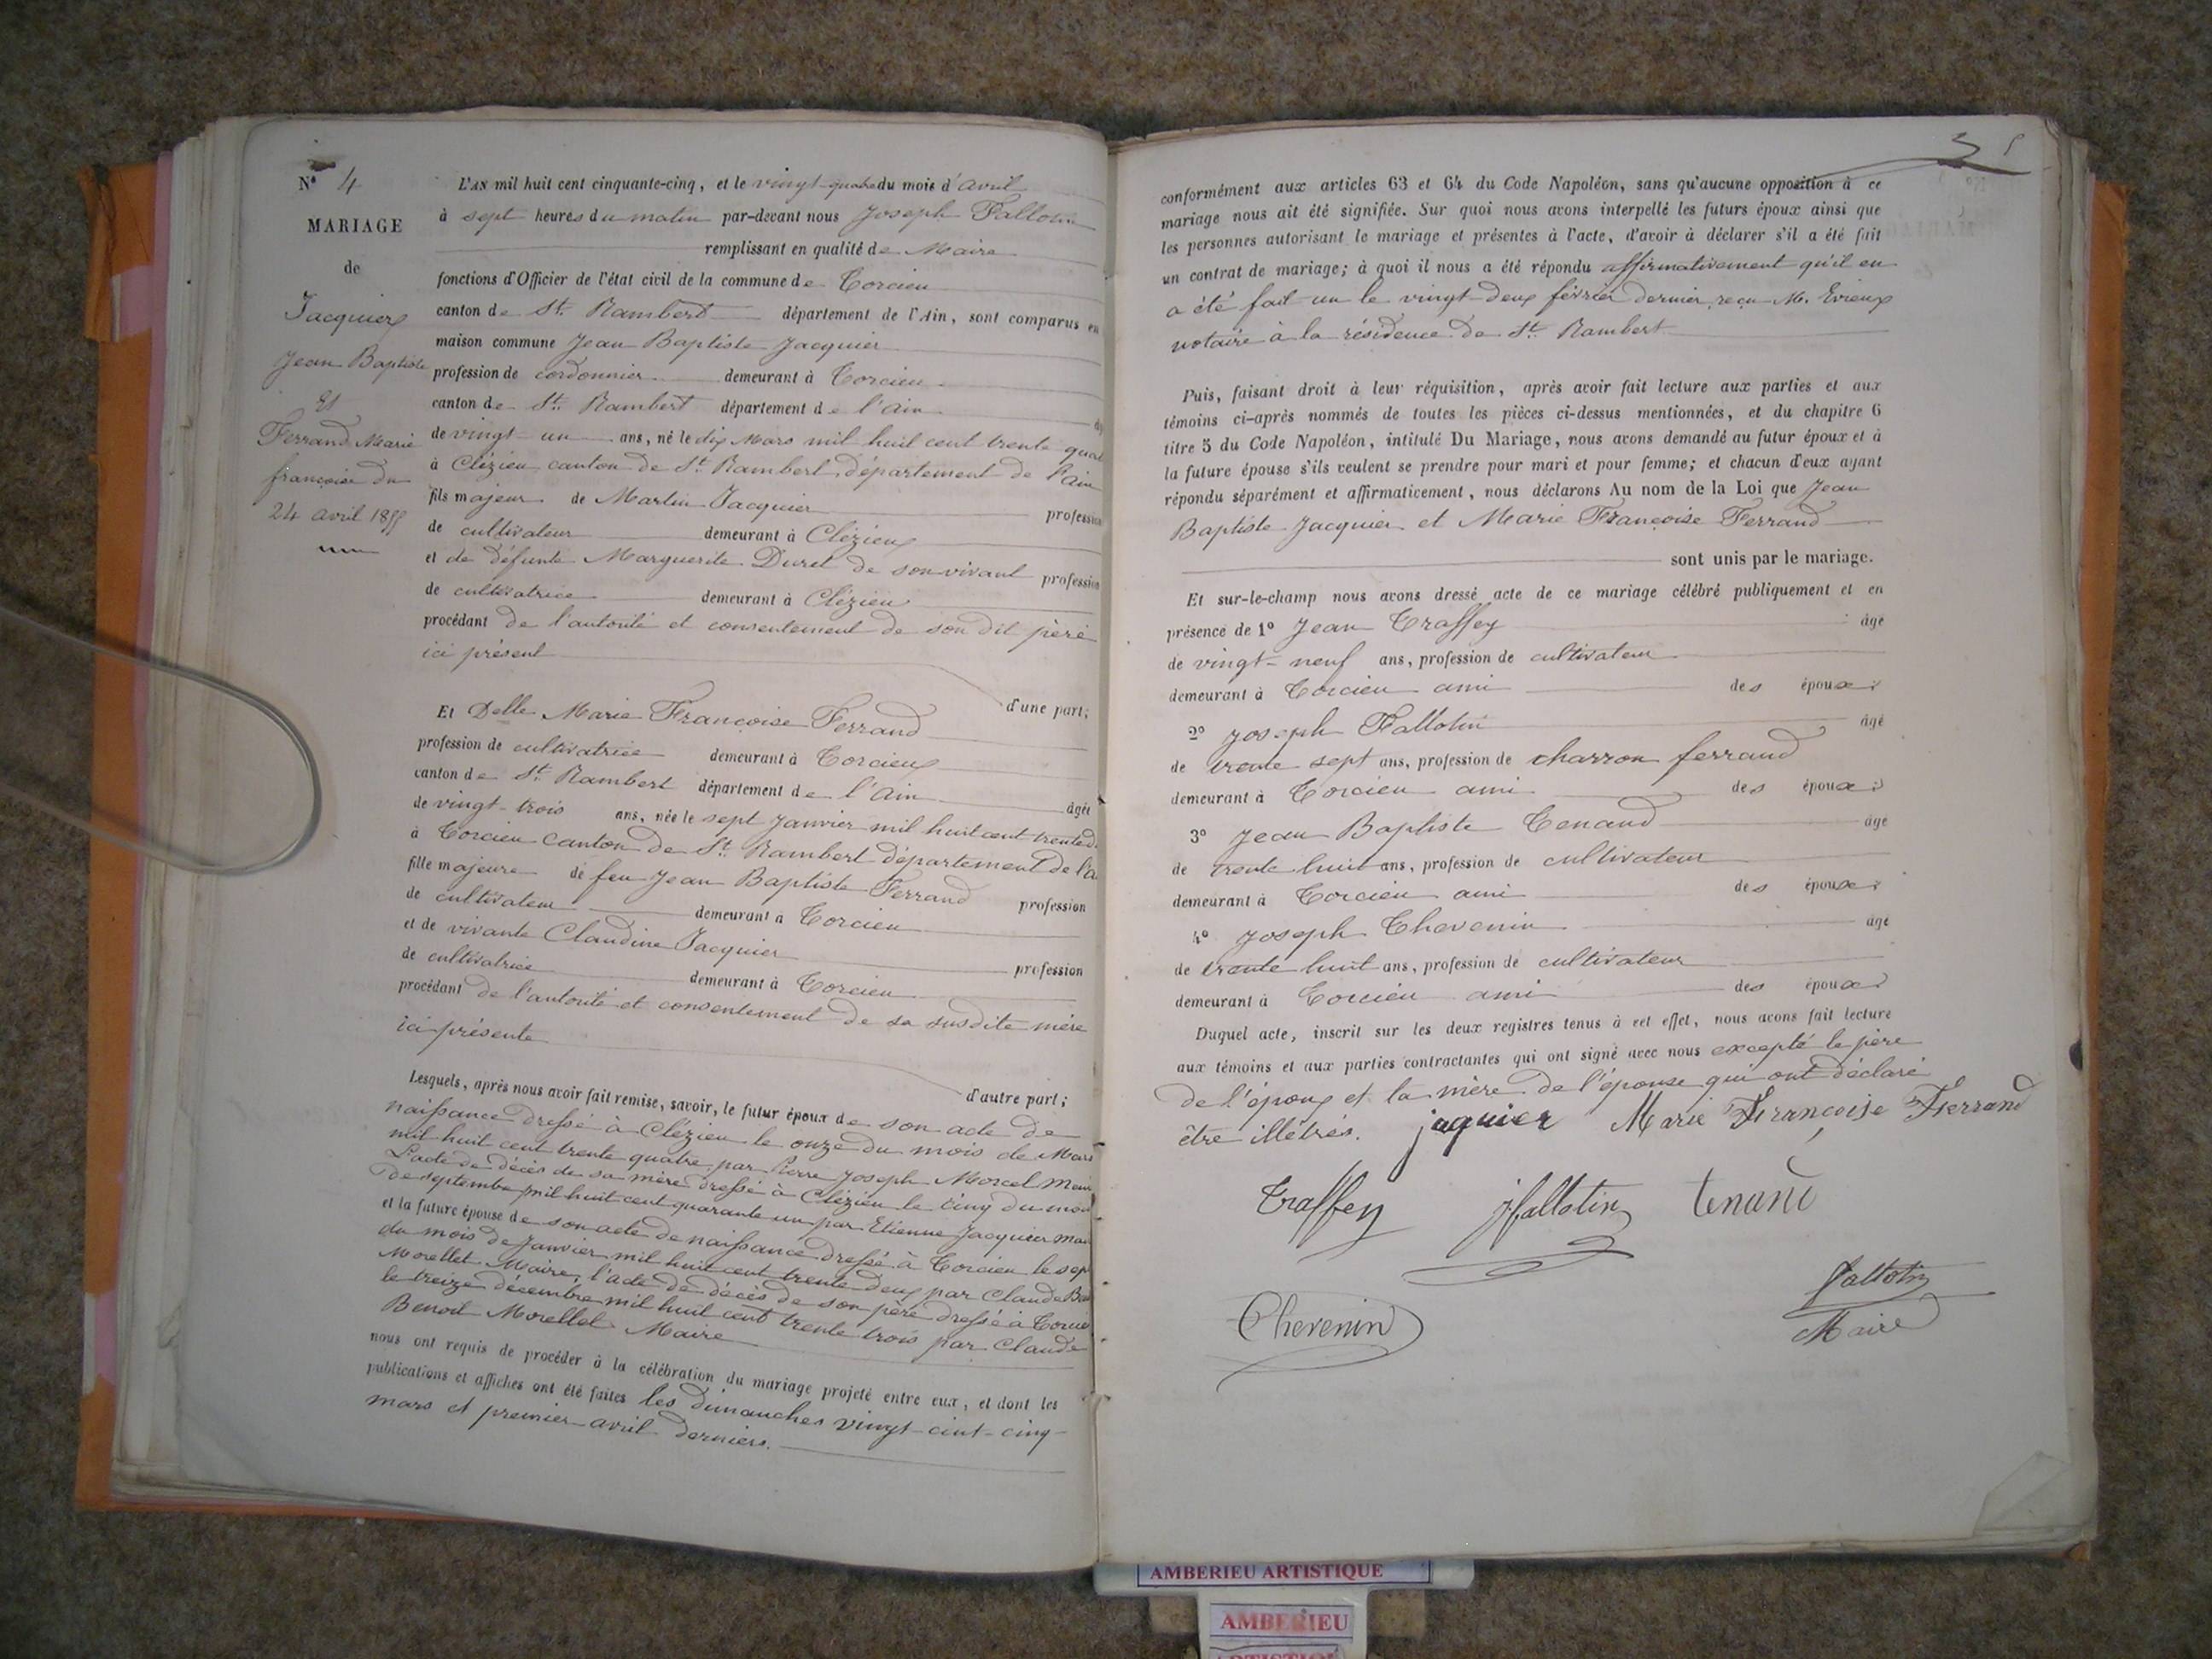 N° 4
MARIAGE
de
Jacquier
Jean Baptiste
Et
Ferrand Marie
françoise du
24 avril 1855
L'AN mil huit cent cinquante-cinq, et le vingt-quatre du mois d'avril
à sept heures du matin par-devant nous Joseph Fallotin
remplissant en qualité de Maire
fonctions d'Officier de l'état civil de la commune de Torcieu
canton de St. Rambert département de l'Ain, sont comparus en
maison commune Jean Baptiste Jacquier
profession de cordonnier demeurant à Torcieu
canton de St. Rambert département de l'ain
de vingt-un ans, né le dix Mars mil huit cent trente quat
à Clézieu canton de St. Rambert département de l'ain
fils majeur de Martin Jacquier profession
de cultivateur demeurant à Clézieux
et de défunte Marguerite Duret de son vivant profession
de cultivatrice demeurant à Clézieu
procédant de l'autorité et consentement de son dit père
ici présent
d'une part;
Et Delle Marie Françoise Ferrand
profession de cultivatrice demeurant à Torcieux
canton de St. Rambert département de l'ain âgée
de vingt-trois ans, née le sept Janvier mil huit cent trente d
à Torcieu canton de St. Rambert département de l'a
fille majeure de feu Jean Baptiste Ferrand profession
de cultivateur demeurant à Torcieu
et de vivante Claudine Jacquier profession
de cultivatrice demeurant à Torcieu
procédant de l'autorité et consentement de sa susdite mère
ici présente
d'autre part;
Lesquels, après nous avoir fait remise, savoir, le futur époux de son acte de
naissance dressé à Clézieu le onze du mois de Mars
mil huit cent trente quatre par Pierre Joseph Morcel Maire
L'acte de décès de sa mère dressé à Clézieu le cinq du mois
de septembre mil huit cent quarante un par Etienne Jacquier mai
et la future épouse de son acte de naissance dressé à Torcieu le sept
du mois de Janvier mil huit cent trente deux par Claude Be
Morellet Maire, l'acte de décès de son père dressé à Torcieu
le treize décembre mil huit cent trente trois par Claude
Benoit Morellet Maire
nous ont requis de procéder à la célébration du mariage projeté entre eux, et dont les
publications et affiches ont été faites les dimanches vingt-cint-cinq
mars et premier avril derniers.
conformément aux articles 63 et 64 du Code Napoléon, sans qu'aucune opposition à ce
mariage nous ait été signifiée. Sur quoi nous avons interpellé les futurs époux ainsi que
les personnes autorisant le mariage et présentes à l'acte, d'avoir à déclarer s'il a été fait
un contrat de mariage; à quoi il nous a été répondu affirmativement qu'il en
a été fait un le vingt-deux février dernier, reçu M. Evieux
notaire à la résidence de St. Rambert
Puis, faisant droit à leur réquisition, après avoir fait lecture aux parties et aux
témoins ci-après nommés de toutes les pièces ci-dessus mentionnées, et du chapitre 6
titre 5 du Code Napoléon, intitulé Du Mariage, nous avons demandé au futur époux et à
la future épouse s'ils veulent se prendre pour mari et pour femme; et chacun d'eux ayant
répondu séparément et affirmativement, nous déclarons Au nom de la Loi que Jean
Baptiste Jacquier et Marie Françoise Ferrand
sont unis par le mariage.
Et sur-le-champ nous avons dressé acte de ce mariage célébré publiquement et en
présence de 1° Jean Traffey âgé
de vingt-neuf ans, profession de cultivateur
demeurant à Torcieu ami des époux;
2° Joseph Fallotin âgé
de trente sept ans, profession de charron ferrand
demeurant à Torcieu ami des époux;
3° Jean Baptiste Tenand âgé
de trente huit ans, profession de cultivateur
demeurant à Torcieu ami des époux;
4° Joseph Thevenin âgé
de trente huit ans, profession de cultivateur
demeurant à Torcieu ami des époux
Duquel acte, inscrit sur les deux registres tenus à cet effet, nous avons fait lecture
aux témoins et aux parties contractantes qui ont signé avec nous excepté le père
de l'époux et la mère de l'épouse qui ont déclaré
être illétrés. jaquier Marie Françoise Ferrand
Traffey jfallotin tenand
Thevenin
fallotin
Maire
AMBERIEU ARTISTIQUE
AMBERIEU
ARTISTIQUE